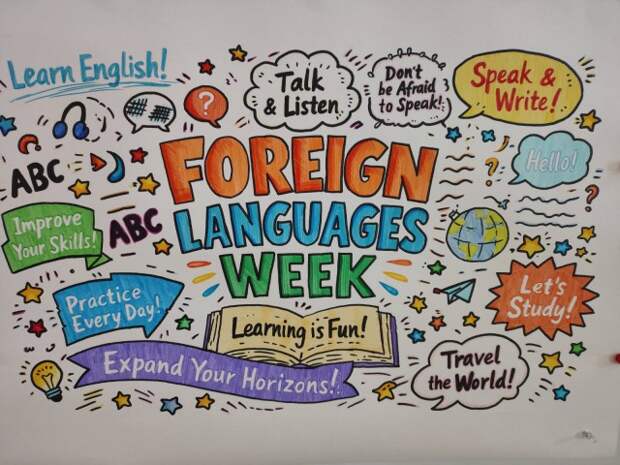 Learn English!
Talk
& Listen
Don't
be Afraid
to Speak!
Speak &
Write!
?
ABC
FOREIGN
LANGUAGES
WEEK
Hello!
?
?
Improve
Your Skills!
ABC
Practice
Every Day!
Learning is Fun!
Let's
Study!
Expand Your Horizons!
Travel
the World!